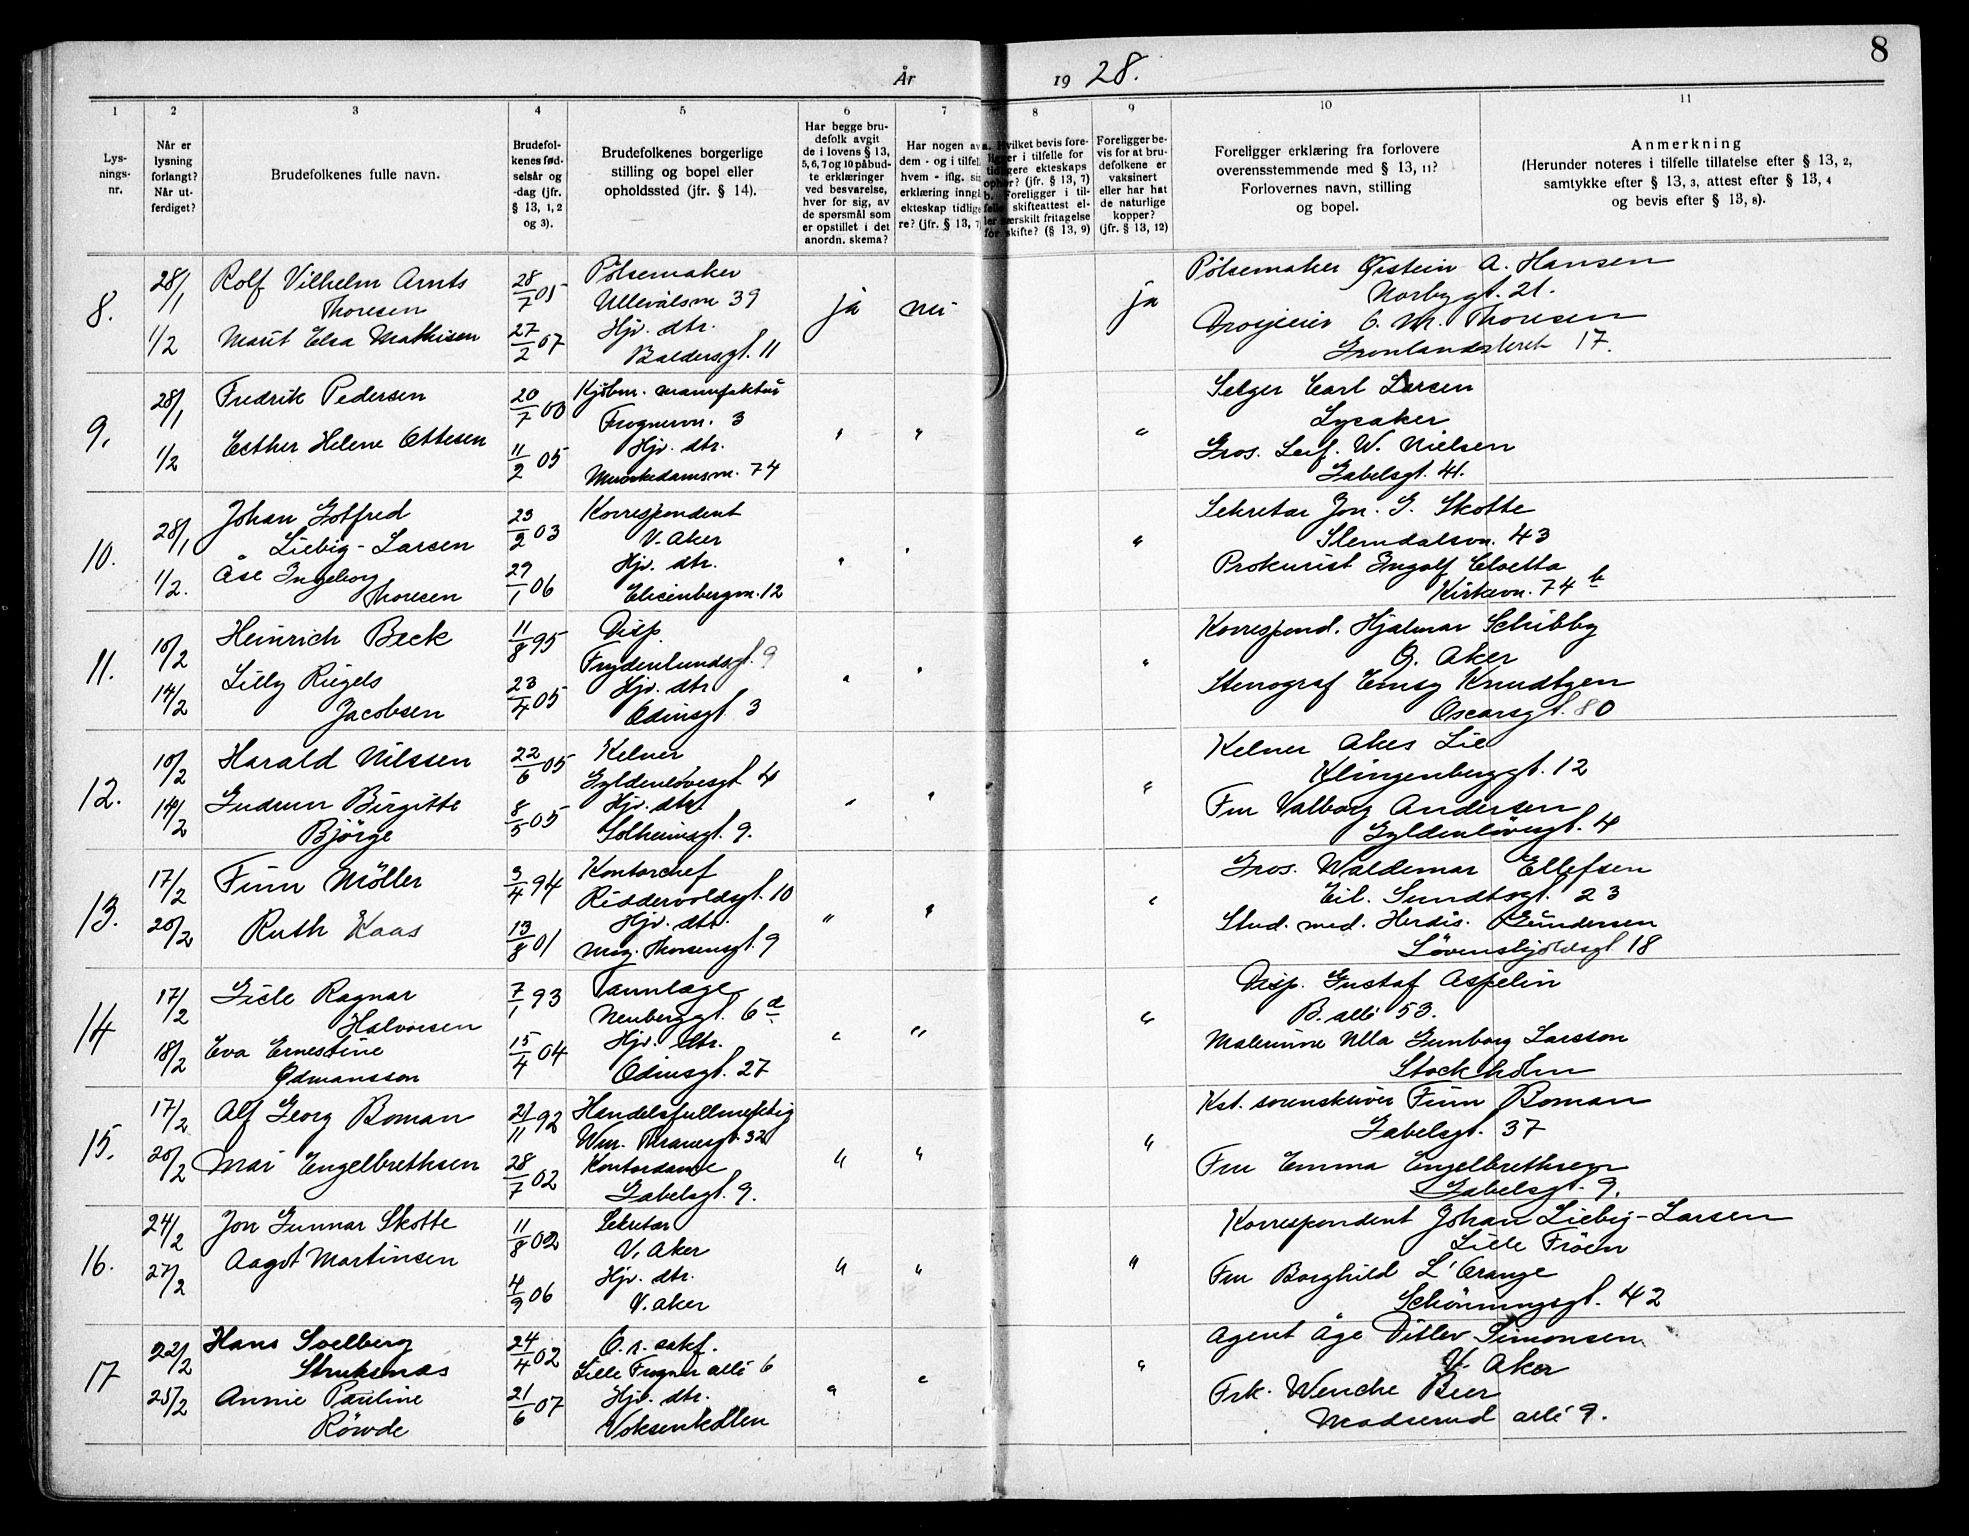 8
År 1928.
1 2 3 4 5 6 7 8 9 10 11
Lys-
nings-
nr.
Når er
lysning
forlangt?
Når ut-
ferdiget?
Brudefolkenes fulle navn.
Brudefol-
kenes fød-
selsår og
-dag (jfr.
§ 13, 1, 2
og 3).
Brudefolkenes borgerlige
stilling og bopel eller
opholdssted (jfr. § 14).
Har begge bru-
defolk avgit
de i lovens § 13,
5, 6, 7 og 10 påbud-
te erklæringer
ved besvarelse,
hver for sig, av
de spørsmål som
er opstillet i det
anordn. skema?
Har nogen av
dem - og i tilfel
hvem - iflg. si
erklæring inngå
ekteskap tidlige
re? (jfr. § 13, 7
a. Hvilket bevis fore-
ligger i tilfelle for
tidligere ekteskaps
ophør? (jfr. § 13, 7)
b. Foreligger i til-
felle skifteattest el-
ler særskilt fritagelse
for skifte? (§ 13, 9)
Foreligger be-
vis for at bru-
defolkene er
vaksinert
eller har hat
de naturlige
kopper?
(jfr. § 13, 12)
Foreligger erklæring fra forlovere
overensstemmende med § 13, 11?
Forlovernes navn, stilling
og bopel.
Anmerkning
(Herunder noteres i tilfelle tillatelse efter § 13, 2,
samtykke efter § 13, 3, attest efter § 13, 4
og bevis efter § 13, 8).
8.
28/1
1/2
Rolf Vilhelm Arnts
Thoresen
Marit Elsa Mathisen
28/7 05
27/2 07
Pølsemaker
Ullevålsvn 39
Hjv. dtr.
Baldersgt. 11
ja
nei
ja
Pølsemaker Øistein A. Hansen
Norbygt. 21.
Drosjeeier C. M. Thoresen
Grønlandsleret 17.
9.
28/1
1/2
Fredrik Pedersen
Esther Helene Ottesen
20/7 00
11/2 05
Kjøbm. manufaktur
Frognervn. 3
Hjv. dtr.
Munkedamsvn. 74
" " "
Selger Carl Larsen
Lysaker
Gros. Leif. W. Nielsen
Gabelsgt. 41.
10.
28/1
1/2.
Johan Gotfred
Liebig-Larsen
Åse Ingeborg
Thoresen
23/2 03
29/1 06
Korrespondent
V. Aker
Hjv. dtr.
Elisenbergvn. 12
" " "
Sekretær Jon. G. Skotte
Slemdalsvn. 43
Prokurist Ingolf Cloetta
Kirkevn. 74 b
11.
10/2
14/2
Heinrich Beck
Lilly Riegels
Jacobsen
11/8 95
23/4 05
Disp.
Frydenlundsgt. 9
Hjv. dtr
Odinsgt. 3
" " "
Korrespond. Hjalmar Schibby
Ø. Aker
Stenograf Emsy Knudtzen
Oscarsgt. 80
12.
10/2
14/2
Harald Nilssen
Gudrun Birgitte
Bjørge
22/6 05
8/5 05
Kelner
Gyldenløvesgt 4
Hjv. dtr
Solheimsgt. 9.
" " "
Kelner Akes Lie
Klingenberggt. 12
Fru Valborg Andersen
Gyldenløvesgt. 4
13.
17/2
20/2
Finn Möller
Ruth Kaas
3/4 94
13/8 01
Kontorchef
Riddervoldsgt. 10
Hjv. dtr.
Mag. Thorsensgt. 9
" " "
Gros. Waldemar Ellefsen
Eil. Sundtsgt. 23
Stud. med. Herdis. Gundersen
Løvenskjoldsgt. 18
14
17/2
18/2
Gisle Ragnar
Halvorsen
Eva Ernestine
Ødmansson
7/1 93
15/4 04
Tannlæge
Neuberggt. 6 d
Hjv. dtr.
Odinsgt. 27
" " "
Disp. Gustaf Aspelin
B. allé 53.
Malerinne Ulla Gunborg Larsson
Stockholm
15.
17/2
20/2
Alf Georg Boman
Mai Engelbrethsen
21/11 92
28/7 02
Handelsfullmektig
Wm. Thranesgt. 32
Kontordame
Gabelsgt. 9.
" " "
Kst. sorenskriver Finn Boman
Gabelsgt. 37
Fru Emma Engelbrethsen
Gabelsgt. 9.
16.
24/2
27/2
Jon Gunnar Skotte
Aagot Martinsen
11/8 02
4/9 06
Sekretær
V. Aker
Hjv. dtr.
V. Aker
" " "
Korrespondent Johan Liebig-Larsen
Lille Frøen
Fru Borghild L'Orange
Schönningsgt. 42
17
22/2
25/2
Hans Solberg
Struksnæs
Annie Pauline
Röwde
24/4 02
21/6 07
O. r. sakf.
Lille Frogner allé 6
Hjv. dtr.
Voksenkollen
" " "
Agent Åge Ditlev-Simonsen
V. Aker
Frk. Wenche Beer
Madserud allé 9.